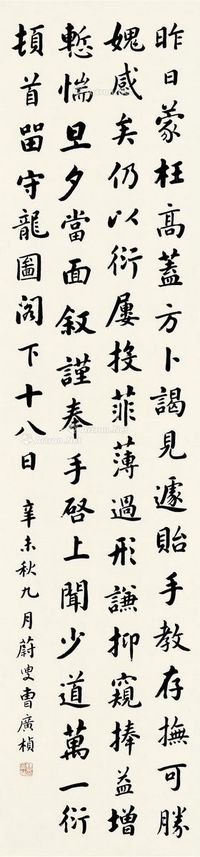 昨日蒙枉高蓋方卜謁見遽貽手教存撫可勝
媿感矣仍以衍屢投菲薄過形謙抑窺捧益增
慙惴旦夕當面敘謹奉手啓上聞少道萬一衍
頓首留守龍圖閣下十八日
辛未秋九月蔚叟曹廣楨